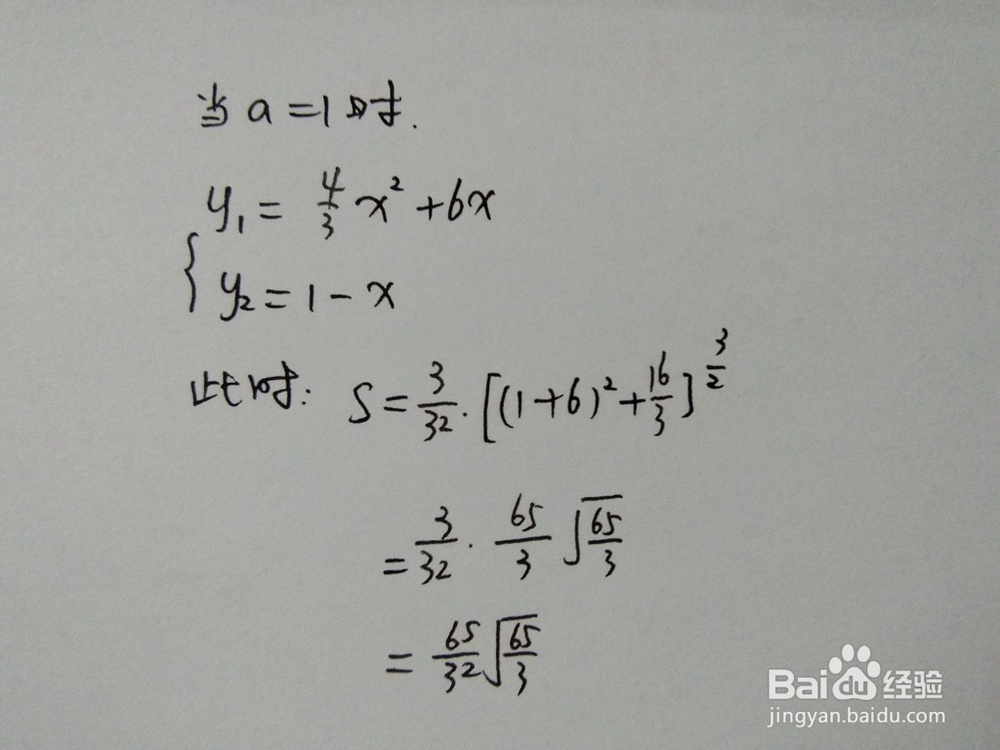 当 a=1 时.
y₁ = 4/3 x² + 6x
{ y₂ = 1 - x
此时: S = 3/32 · [(1+6)² + 16/3]^(3/2)
= 3/32 · 65/3 √(65/3)
= 65/32 √(65/3)
Baidu 经验
jingyan.baidu.com